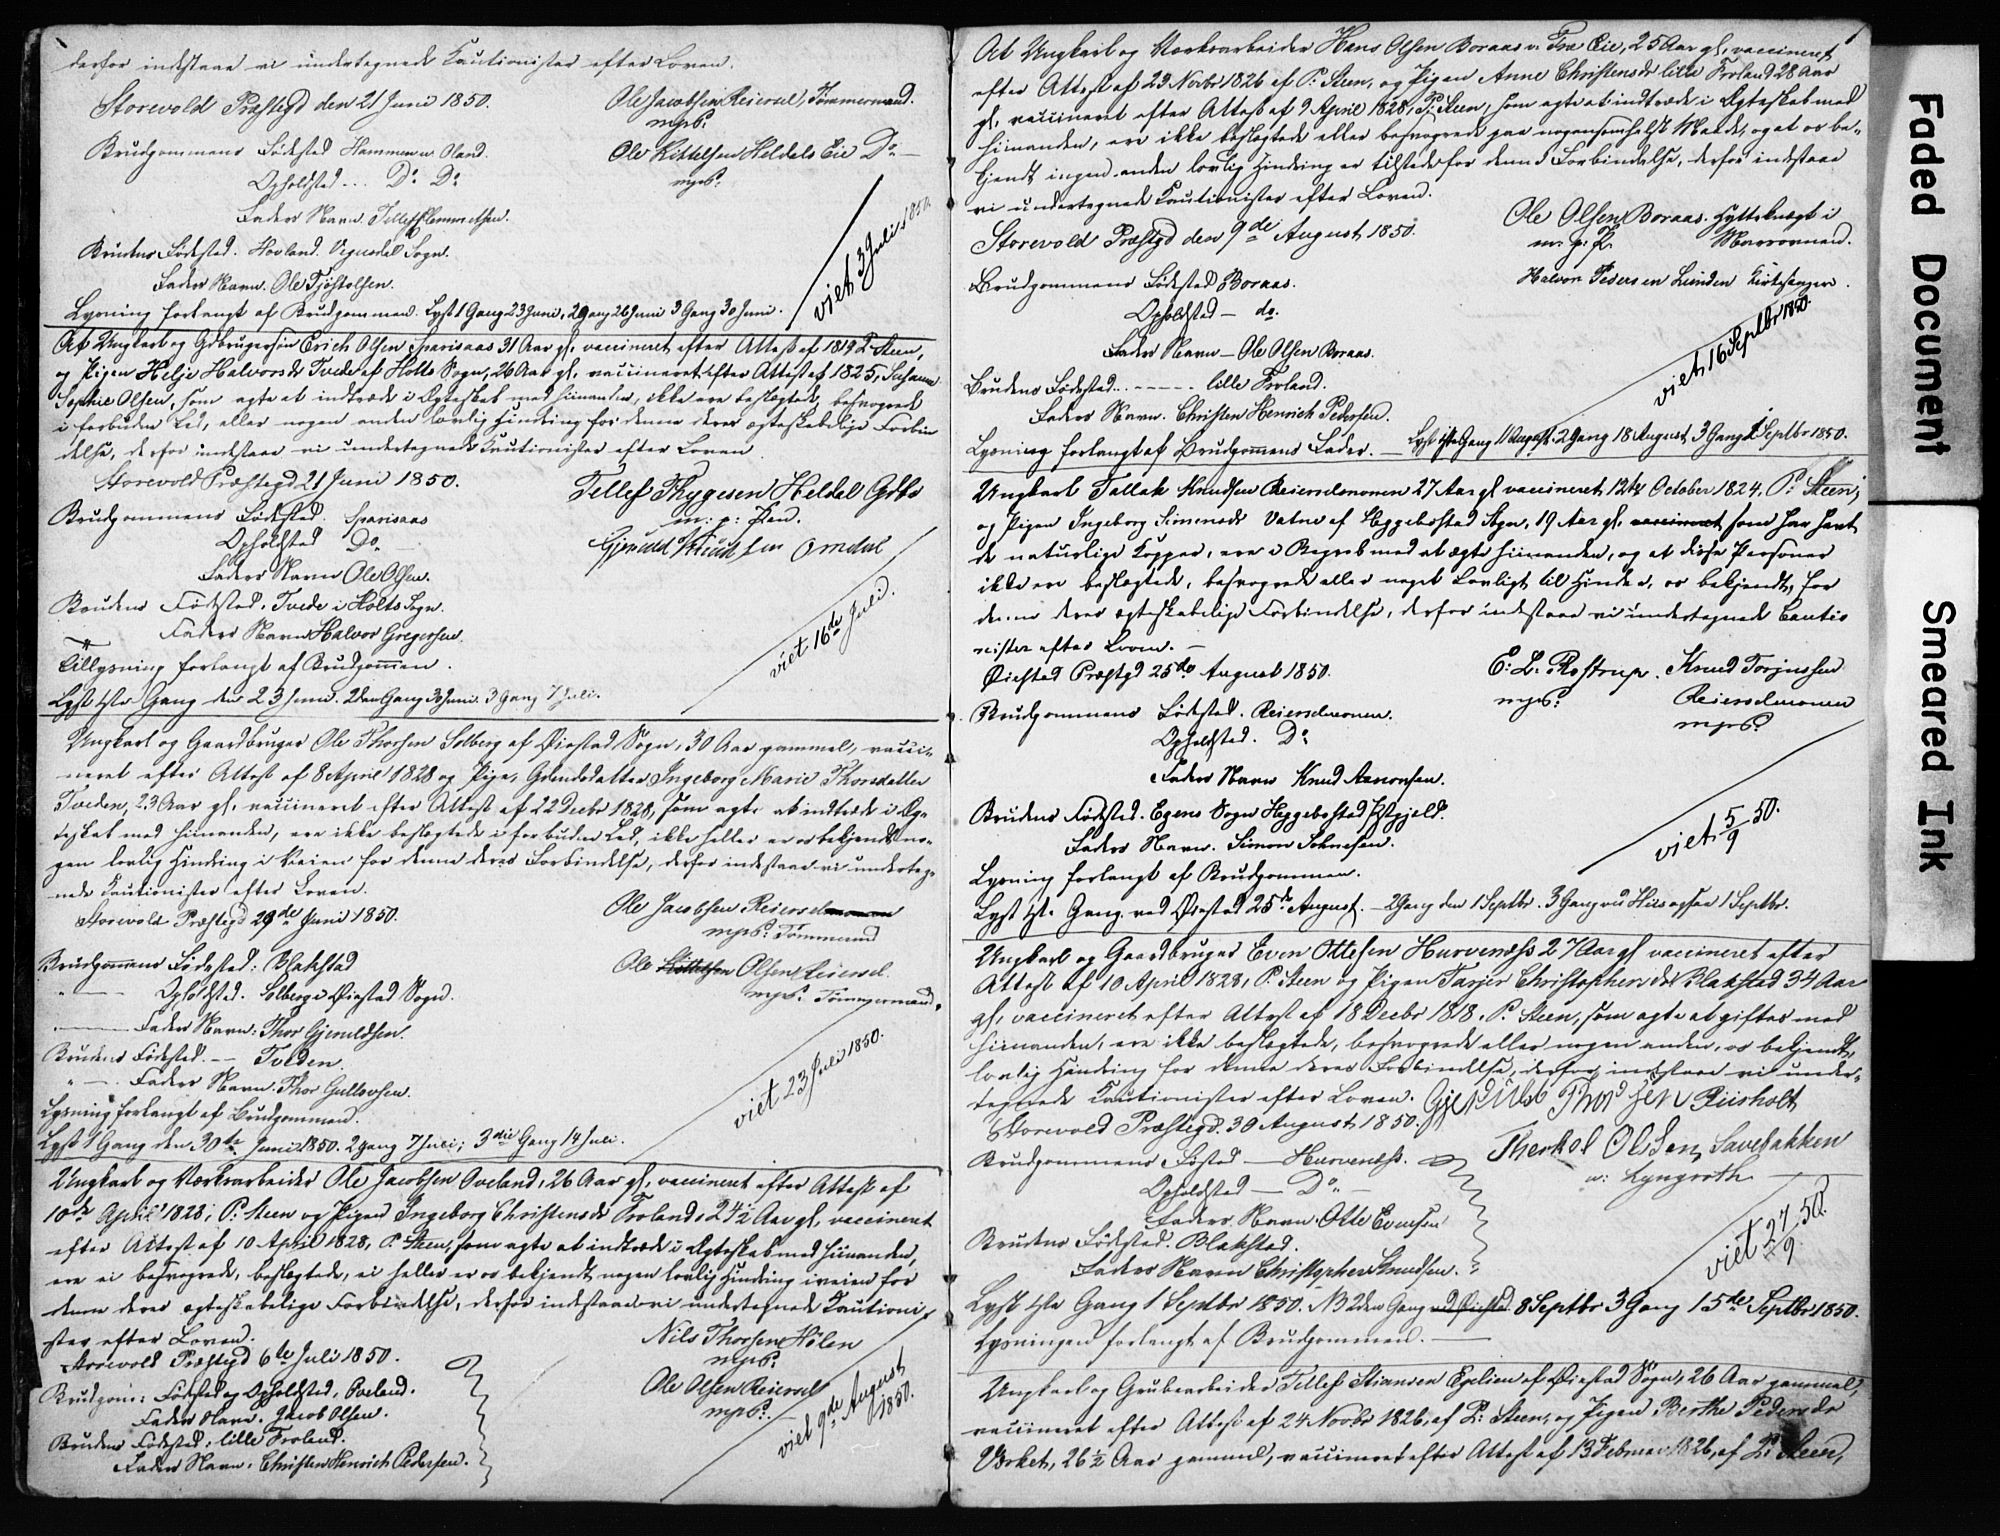 derfor indestaae vi undertegnede Kautionister efter Loven.
Storevold Præstegd den 21 Juni 1850.
Ole Jacobsen Reiersel, Tømmermand.
mpS:
Brudgommens Fødested Hammen u. Oland.
Ole Kittelsen Heldals Eie Do
mpS:
Opholdsted ... Do Do
Faders Navn. Tellef Clemmetsen.
Brudens Fødested. Hovland. Vegusdal Sogn.
Faders Navn. Ole Tjøstolsen.
viet 3 Juli 1850.
Lysning forlangt af Brudgommen. Lyst 1 Gang 23 Juni, 2 Gang 26 Juni 3 Gang 30 Juni.
At Ungkarl og Gdbrugersøn Erich Olsen Sparisaas 31 Aar gl. vaccineret efter Attest af 1819 P. Steen,
og Pigen Helje Halvorsdr Tvede af Holts Sogn, 26 Aar gl, vaccineret efter Attest af 1825, Susanne
Sophie Olsen, som agte at indtræde i Ægteskab med hinanden, ikke ere beslægtede, besvogrede
i forbuden Led, eller nogen anden lovlig Hindring for denne deres ægteskabelige Forbin
delse, derfor indestaae vi undertegnede Kautionister efter Loven
Storevold Præstegd 21 Juni 1850.
Tellef Thygesen Heldel Gdbr
m: p: Pen.
Brudgommens Fødested. Sparisaas
Gjeruld Knudsen Omdal
Opholdsted Do
Faders Navn Ole Olsen.
Brudens Fødested. Tvede i Holts Sogn.
Faders Navn Halvor Gregersen.
viet 16de Juli.
Tillysning forlangt af Brudgommen.
Lyst 1ste Gang den 23 Juni. 2den Gang 30 Juni. 3 Gang 7 Juli.
Ungkarl og Gaardbruger Ole Thorsen Solberg af Øiestad Sogn, 30 Aar gammel, vacci-
neret efter Attest af 8 April 1828 og Pige, Gdmdsdatter Ingeborg Marie Thorsdatter
Tveden, 23 Aar gl. vaccineret efter Attest af 22 Decbr 1828, som agte at indtræde i Æg-
teskab med hinanden, ere ikke beslægtede i forbuden Led, ikke heller er os bekjendt no-
gen lovlig Hindring i Veien for denne deres Forbindelse, derfor indestaae vi underteg-
nede Kautionister efter Loven.
Storevold Præstegd 29de Juni 1850.
Ole Jacobsen Reiersel
mpS: Tømmermd
Brudgommens Fødested: Blakstad
Ole Olsen Reiersel
mpS. Tømmermand.
Opholdsted. Solberg i Øiestad Sogn.
Faders Navn: Thor Gjeruldsen.
Brudens Fødested. — Tveden.
Faders Navn: Thor Gullovsen.
viet 23 Juli 1850.
Lysning forlangt af Brudgommen.
Lyst 1 Gang den 30te Juni 1850. 2 Gang 7 Juli; 3die Gang 14 Juli.
Ungkarl og Værksarbeider Ole Jacobsen Oveland, 26 Aar gl, vaccineret efter Attest af
10de April 1828; P: Steen og Pigen Ingeborg Christensdr Froland, 24½ Aar gl, vaccineret
efter Attest af 10 April 1828, P. Steen, som agte at indtræde i Ægteskab med hinanden,
ere ei besvogrede, beslægtede, ei heller er os bekjendt nogen lovlig Hindring i veien for
denne deres ægteskabelige Forbindelse, derfor indestaae vi undertegnede Kautioni-
ster efter Loven.
Storevold Præstegd 6te Juli 1850.
Nils Thorsen Hølen
mpS:
Brudgom: Fødested og Opholdsted, Oveland.
Ole Olsen Reiersel
mpS:
Faders Navn. Jacob Olsen.
Brudens Fødested, lille Froland.
Faders Navn. Christen Henrich Pedersen.
viet 9de August 1850.
At Ungkarl og Værksarbeider Hans Olsen Boraas v. Fræ Eie, 25 Aar gl, vaccineret
efter Attest af 23 Novbr 1826 af P. Steen, og Pigen Anne Christensdr lille Froland 28 Aar
gl, vaccineret efter Attest af 9 April 1828, P: Steen, som agte at indtræde i Ægteskab med
hinanden, ere ikke beslægtede eller besvogrede paa nogensomhelst Maade, og at os be-
kjendt ingen anden lovlig Hindring er tilstede for denne Forbindelse, derfor indestaae
vi undertegnede Kautionister efter Loven.
Storevold Præstegd den 9de August 1850.
Ole Olsen Boraas. Hytteknægt i
m. p. P. Marsovnen.
Brudgommens Fødested Boraas.
Halvor Pedersen Lunden Kirkesanger.
Opholdsted — do.
Faders Navn — Ole Olsen Boraas.
viet 16 Septbr 1850.
Brudens Fødested. lille Froland.
Faders Navn. Christen Henrich Pedersen.
Lysning forlangt af Brudgommens Fader. — Lyst 1ste Gang 11 August. 2 Gang 18 August 3 Gang 1 Septbr 1850.
Ungkarl Tallak Knudsen Reierselmoen 27 Aar gl vaccineret 12te October 1824, P: Steen,
og Pigen Ingeborg Simensdr Vatne af Heggebostad Sogn, 19 Aar gl. vaccineret som har havt
de naturlige Kopper, ere i Begreb med at ægte hinanden, og at disse Personer
ikke ere beslægtede, besvogrede eller noget Lovligt til Hinder, os bekjendt, for
denne deres ægteskabelige Forbindelse, derfor indestaae vi undertegnede Cautio
nister efter Loven. —
Øiestad Præstegd 25de August 1850.
E: L: Rostrup. Knud Torjussen
mpS: Reierselmonen
mpS:
Brudgommens Fødested. Reierselmonen.
Opholdsted. Do
Faders Navn Knud Aanonsen.
Brudens Fødested. Egens Sogn Heggebostad Præstegjeld.
Faders Navn. Simon Sohnesen.
viet 5/9 50.
Lysning forlangt af Brudgommen.
Lyst 1ste Gang ved Øiestad 25de August. — 2 Gang den 1 Septbr. 3 Gang ved His ogsaa 1 Septbr.
Ungkarl og Gaardbruger Even Ottesen Hurvenæss 27 Aar gl vaccineret efter
Attest af 10 April 1828, P. Steen og Pigen Tarjer Christophersdr Blakstad 34 Aar
gl, vaccineret efter Attest af 18 Decbr 1818. P. Steen, som agte at giftes med
hinanden, ere ikke beslægtede, besvogrede eller nogen anden, os bekjendt,
lovlig Hindring for denne deres Forbindelse, derfor indestaae vi under-
tegnede Kautionister efter Loven. Gjeruldb Thorsen Riisholt
Storevold Præstegd. 30 August 1850.
Therkel Olsen, Savebakken
Brudgommens Fødested — Hurvenæss.
u: Lyngroth
Opholdsted — Do
Faders Navn. Otte Evensen
Brudens Fødested. Blakstad.
Faders Navn Christopher Knudsen.
viet 27/9 50.
Lyst 1ste Gang 1 Septbr 1850. NB 2den Gang ved Øiestad 8 Septbr 3 Gang 15de Septbr 1850.
Lysningen forlangt af Brudgommen. —
Ungkarl og Grubearbeider Tellef Stiansen Egelien af Øiestad Sogn, 26 Aar gammel,
vaccineret efter Attest af 24 Novbr 1826, af P: Steen, og Pigen Berthe Pedersdr
Vrket, 26½ Aar gammel, vaccineret efter Attest af 13 Februar 1826, af P: Steen,
Faded Document
Smeared Ink